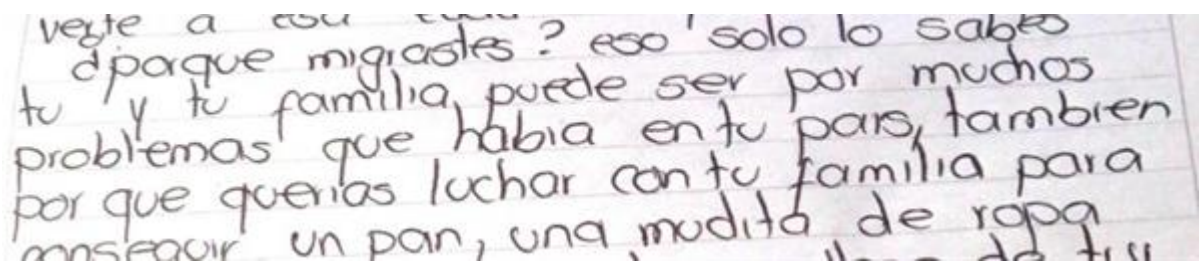 a
¿porque migrastes? eso solo lo sabes
tu y tu familia, puede ser por muchos
problemas que había en tu pais, tambien
por que querias luchar con tu familia para
conseguir un pan, una mudita de ropa
de